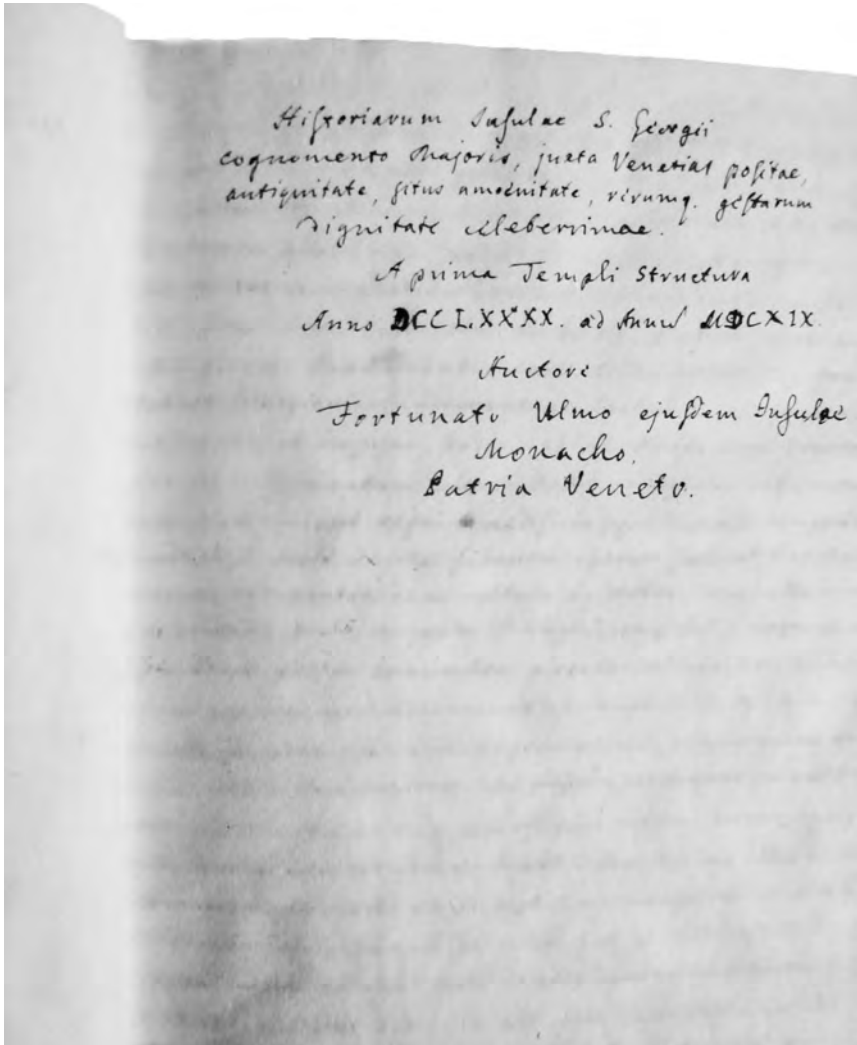 Historiarum Insulae S. Georgii
cognomento Majoris, juxta Venetias positae,
antiquitate, situs amoenitate, rerumq. gestarum
Dignitate celeberrimae.
A prima Templi Structura
Anno DCCLXXXX. ad Annum MDCXIX.
Auctore
Fortunato Ulmo ejusdem Insulae
Monacho.
Patria Veneto.